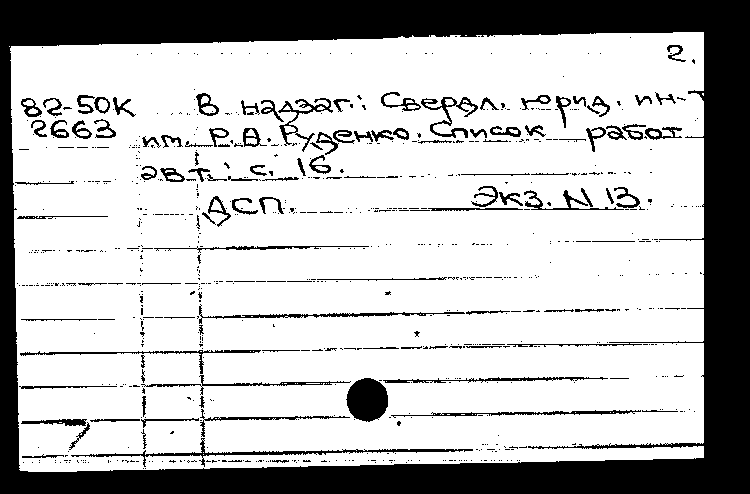 2.
82-50К В надзаг.: Свердл. юрид. ин-т
2663 им. Р.А. Руденко. Список работ
авт.: с. 16.
ДСП. Экз. N 13.